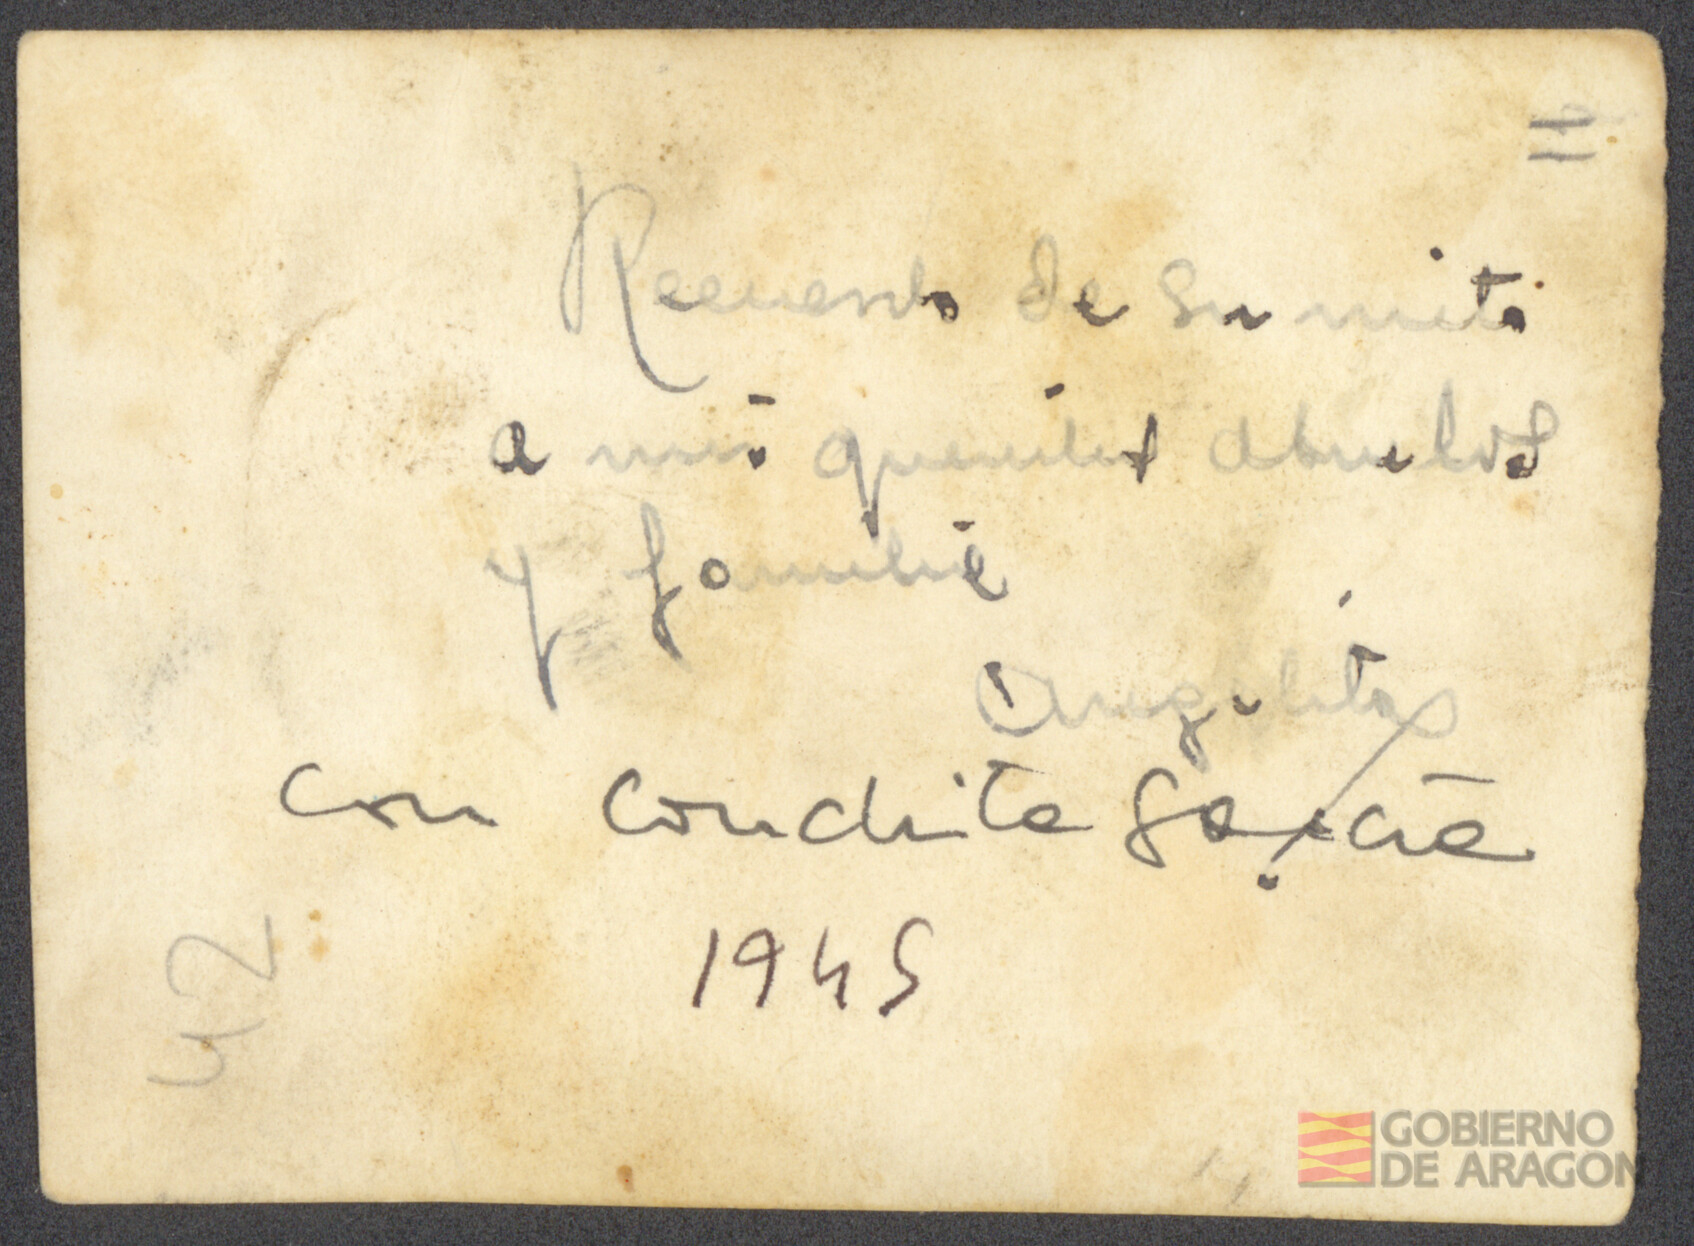 Recuerdo de su nieta
a mis queridos abuelos
y familia
Angelita
con Conchita García
1945
42
GOBIERNO
DE ARAGON